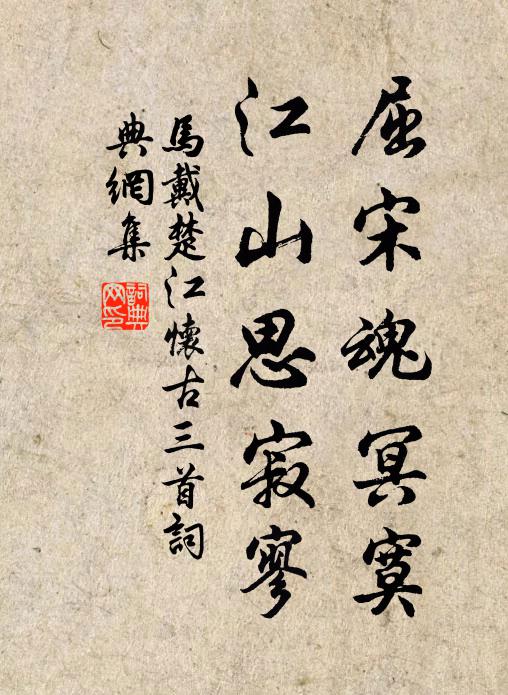 屈宋魂冥寞
江山思寂寥
馬戴楚江懷古三首詞
典網集
詞典網印